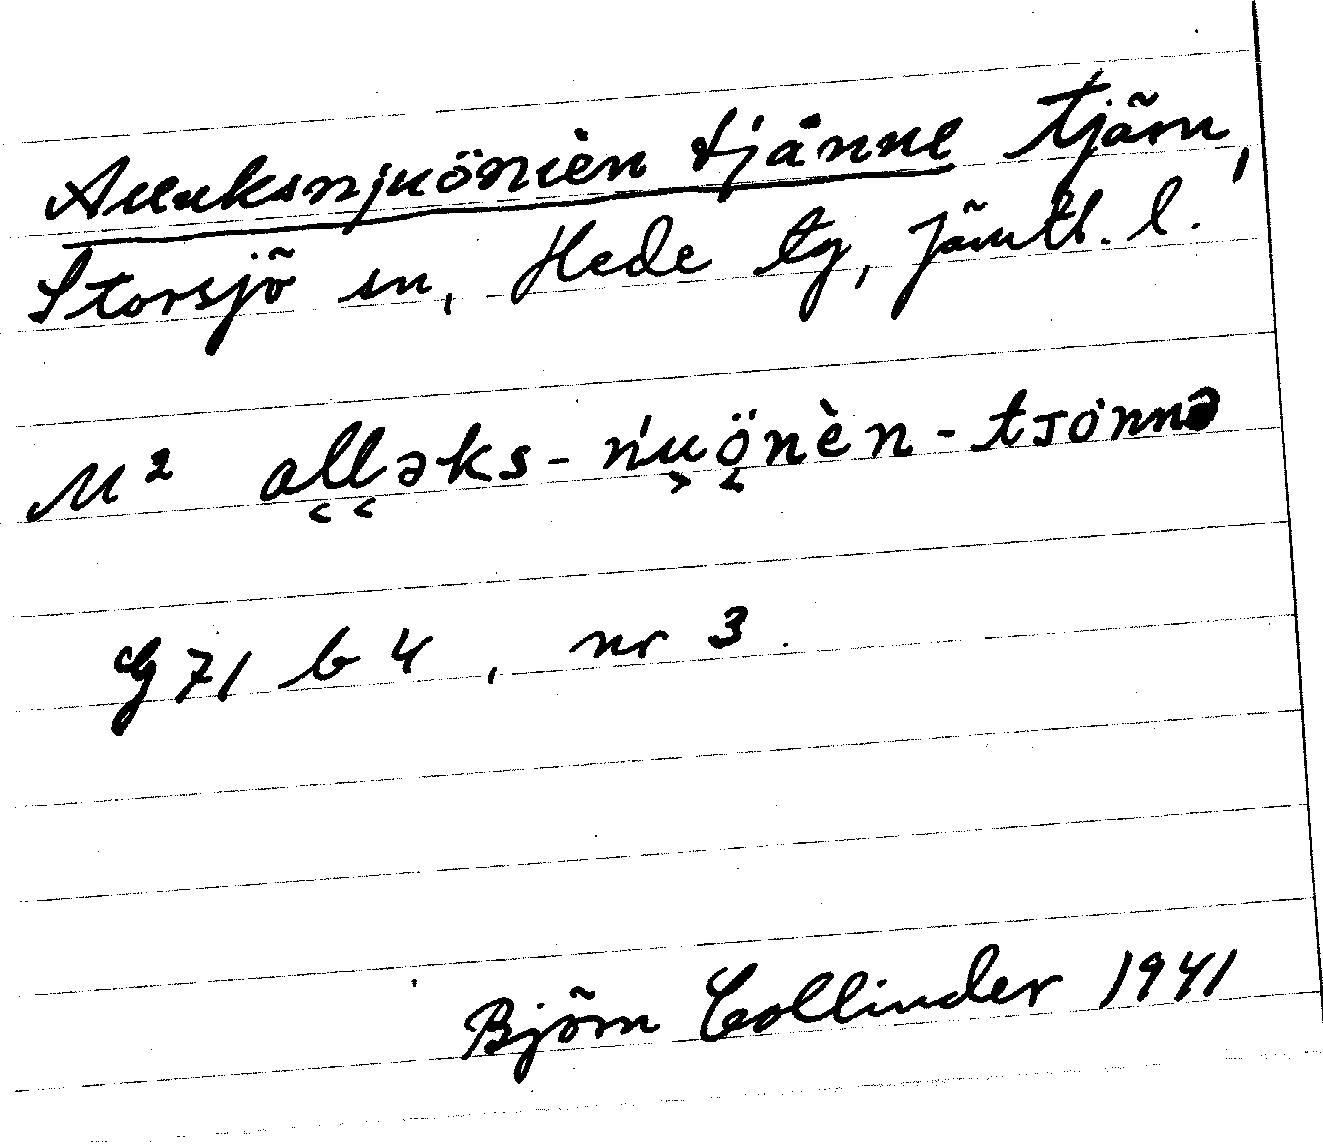 Alleaksnjuönièn tjänne tjärn,
Storsjö sn, Hede tg, Jämtl. l.
M² alləks-ńuönèn-tjònnə
G 71 b 4, nr 3.
Björn Collinder 1941